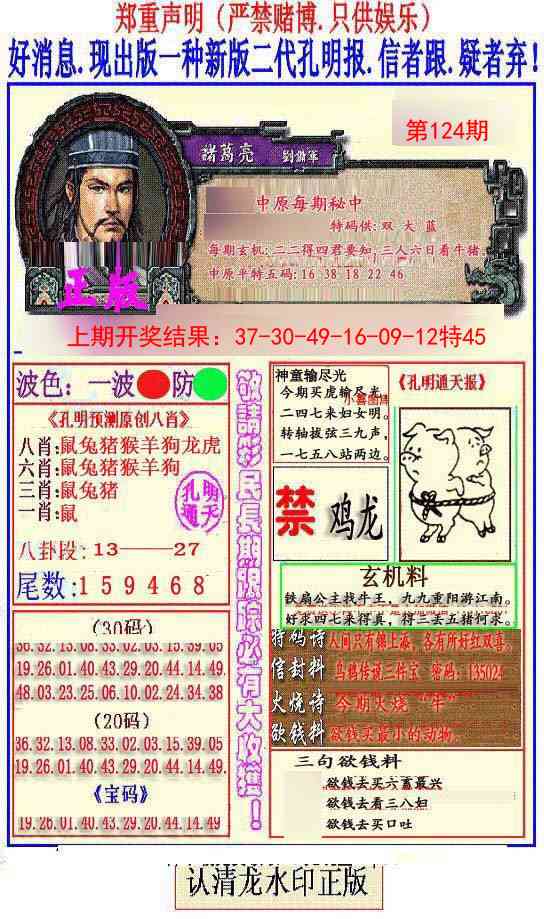 郑重声明（严禁赌博.只供娱乐）
好消息.现出版一种新版二代孔明报.信者跟.疑者弃!
第124期
諸葛亮 劉備軍
中原每期秘中
特码供: 双 大 蓝
每期玄机: 二二得四君要知, 三人六日看牛猪.
中原平特五码: 16 38 18 22 46
正版
上期开奖结果: 37-30-49-16-09-12特45
波色: 一波 防
《孔明预测原创八肖》
八肖:鼠兔猪猴羊狗龙虎
六肖:鼠兔猪猴羊狗
三肖:鼠兔猪
一肖:鼠
孔明
通天
八卦段: 13——27
尾数: 1 5 9 4 6 8
(30码)
36.32.13.08.33.02.03.15.39.05
19.26.01.40.43.29.20.44.14.49
48.03.23.25.06.10.02.24.34.38
(20码)
36.32.13.08.33.02.03.15.39.05
19.26.01.40.43.29.20.44.14.49
《宝码》
19.26.01.40.43.29.20.44.14.49
敬請彩民長期跟踪必有大收獲！
神童输尽光
今期买虎输尽光
二四七来妇女明。
转轴拔弦三九声，
一七五八站两边。
《孔明通天报》
禁 鸡龙
玄机料
铁扇公主找牛王，九九重阳游江南。
好求四七来得真，得三丢五猪何求。
特码诗 人间只有锦上添，各有所好红双喜。
信封料 乌鸦传说三件宝 密码：135024
火烧诗 今期火烧“牛”
欲钱料 欲钱买最小的动物。
三句欲钱料
欲钱去买六畜最兴
欲钱去看三八妇
欲钱去买口吐
认清龙水印正版